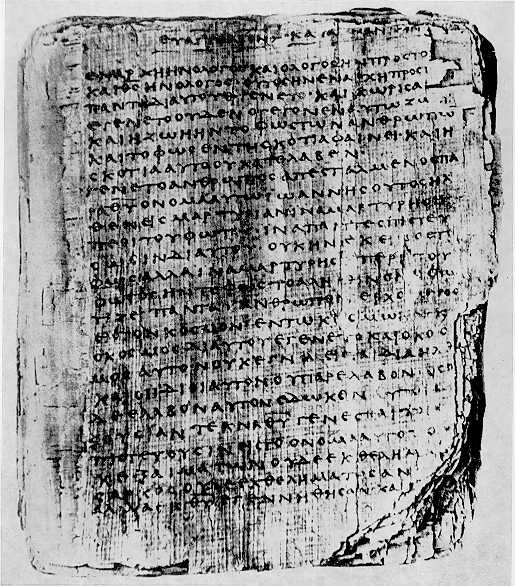 ΕΥΑΓΓΕΛΙΟΝ ΚΑΤΑ ΙΩΑΝΝΗΝ
ΕΝ ΑΡΧΗ ΗΝ Ο ΛΟΓΟΣ ΚΑΙ Ο ΛΟΓΟΣ ΗΝ ΠΡΟΣ ΤΟ
ΚΑΙ ΘΣ ΗΝ Ο ΛΟΓΟΣ ΟΥΤΟΣ ΗΝ ΕΝ ΑΡΧΗ ΠΡΟΣ
ΠΑΝΤΑ ΔΙ ΑΥΤΟΥ ΕΓΕΝΕΤΟ ΚΑΙ ΧΩΡΙΣ Α
ΕΓΕΝΕΤΟ ΟΥΔΕΝ Ο ΓΕΓΟΝΕΝ ΕΝ ΑΥΤΩ ΖΩ
ΚΑΙ Η ΖΩΗ ΗΝ ΤΟ ΦΩΣ ΤΩΝ ΑΝΘΡΩΠΩ
ΚΑΙ ΤΟ ΦΩΣ ΕΝ ΤΗ ΣΚΟΤΙΑ ΦΑΙΝΕΙ ΚΑΙ Η
ΣΚΟΤΙΑ ΑΥΤΟ ΟΥ ΚΑΤΕΛΑΒΕΝ
ΕΓΕΝΕΤΟ ΑΝΘΡΩΠΟΣ ΑΠΕΣΤΑΛΜΕΝΟΣ ΠΑ
ΡΑ ΘΥ ΟΝΟΜΑ ΑΥΤΩ ΙΩΑΝΝΗΣ ΟΥΤΟΣ ΗΛ
ΘΕΝ ΕΙΣ ΜΑΡΤΥΡΙΑΝ ΙΝΑ ΜΑΡΤΥΡΗΣΗ
ΠΕΡΙ ΤΟΥ ΦΩΤΟΣ ΙΝΑ ΠΑΝΤΕΣ ΠΙΣΤΕΥ
ΣΩΣΙΝ ΔΙ ΑΥΤΟΥ ΟΥΚ ΗΝ ΕΚΕΙΝΟΣ ΤΟ
ΦΩΣ ΑΛΛΑ ΙΝΑ ΜΑΡΤΥΡΗΣΗ ΠΕΡΙ ΤΟΥ
ΦΩΤΟΣ ΗΝ ΤΟ ΦΩΣ ΤΟ ΑΛΗΘΙΝΟΝ Ο ΦΩ
ΤΙΖΕΙ ΠΑΝΤΑ ΑΝΘΡΩΠΟΝ ΕΡΧΟΜΕΝΟΝ
ΕΙΣ ΤΟΝ ΚΟΣΜΟΝ ΕΝ ΤΩ ΚΟΣΜΩ ΗΝ ΚΑΙ
Ο ΚΟΣΜΟΣ ΔΙ ΑΥΤΟΥ ΕΓΕΝΕΤΟ ΚΑΙ Ο ΚΟΣ
ΜΟΣ ΑΥΤΟΝ ΟΥΚ ΕΓΝΩ ΕΙΣ ΤΑ ΙΔΙΑ ΗΛ
ΚΑΙ ΟΙ ΙΔΙΟΙ ΑΥΤΟΝ ΟΥ ΠΑΡΕΛΑΒΟΝ ΟΣΟΙ
ΔΕ ΕΛΑΒΟΝ ΑΥΤΟΝ ΕΔΩΚΕΝ ΑΥΤΟΙΣ
ΟΥΣΙΑΝ ΤΕΚΝΑ ΘΥ ΓΕΝΕΣΘΑΙ
ΠΙΣΤΕΥΟΥΣΙΝ ΕΙΣ ΤΟ ΟΝΟΜΑ ΑΥΤΟΥ
ΟΥΚ ΕΞ ΑΙΜΑΤΩΝ ΟΥΔΕ ΕΚ ΘΕΛΗΜΑ
ΣΑΡΚΟΣ ΟΥΔΕ ΕΚ ΘΕΛΗΜΑΤΟΣ ΑΝ
ΑΛΛ ΕΚ ΘΥ ΕΓΕΝΝΗΘΗΣΑΝ ΚΑΙ